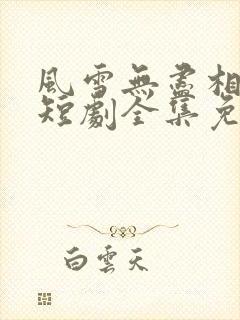 風雪無盡相
短劇全集免
白雲天